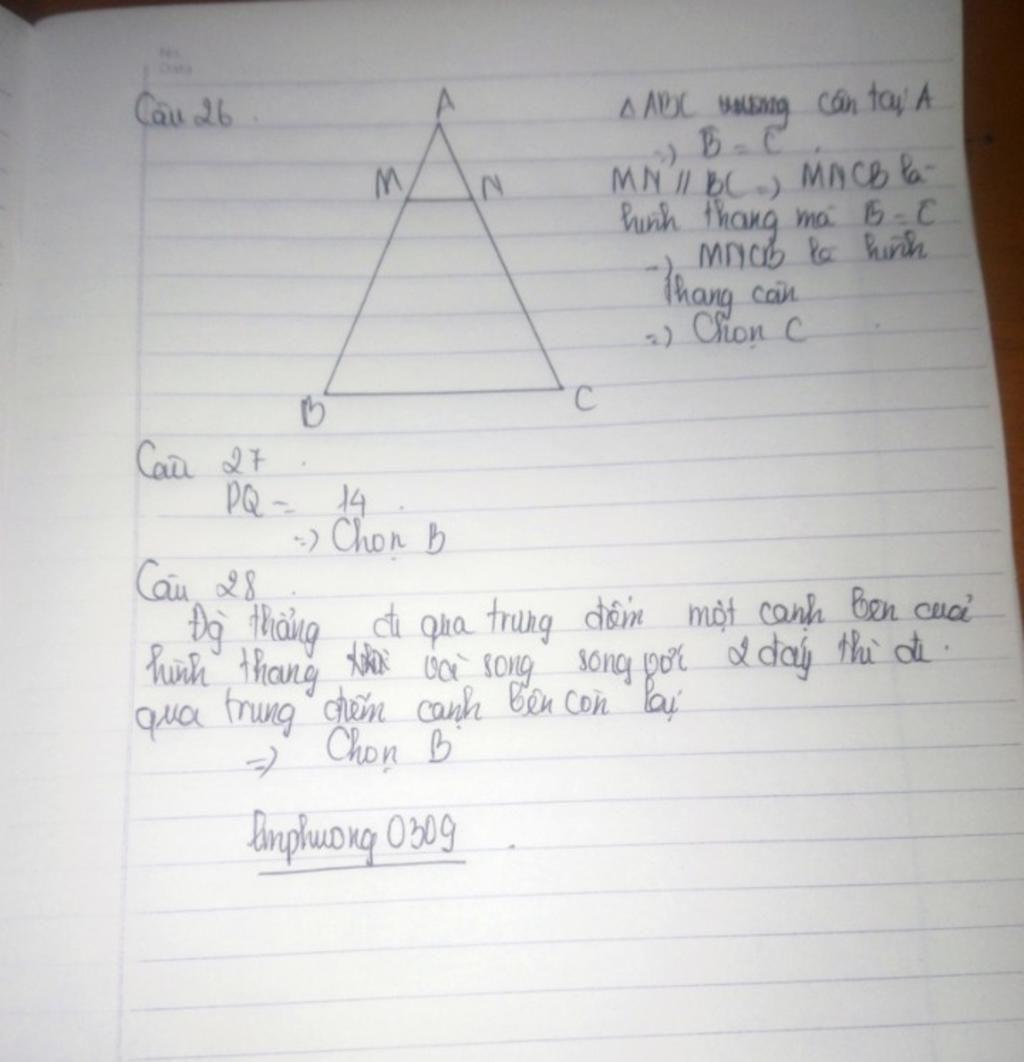 No.
Date
Câu 26.
A
M
N
B
C
Δ ABC cân tại A
=> B = C.
MN // BC => MNCB là
hình thang mà B = C
=> MNCB là hình
thang cân
=> Chọn C
Câu 27.
PQ = 14.
=> Chọn B
Câu 28.
Đg thẳng đi qua trung điểm một cạnh bên của
hình thang và song song với 2 đáy thì đi
qua trung điểm cạnh bên còn lại
=> Chọn B
0309